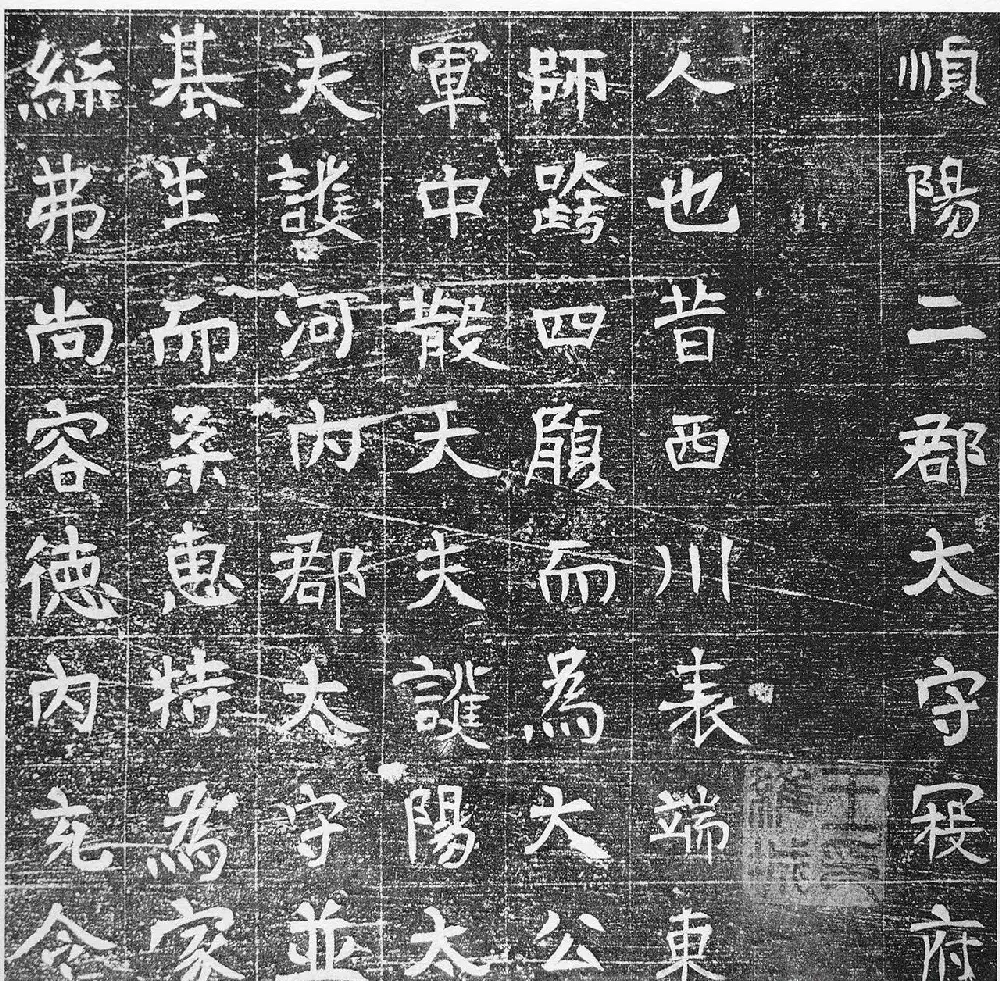 順陽二郡太守寇府
人也昔西川表端東
師跨四而為大公
軍中散大夫譙陽太
夫譙河内郡太守並
基生而柔惠特為家
弗尚容德内充